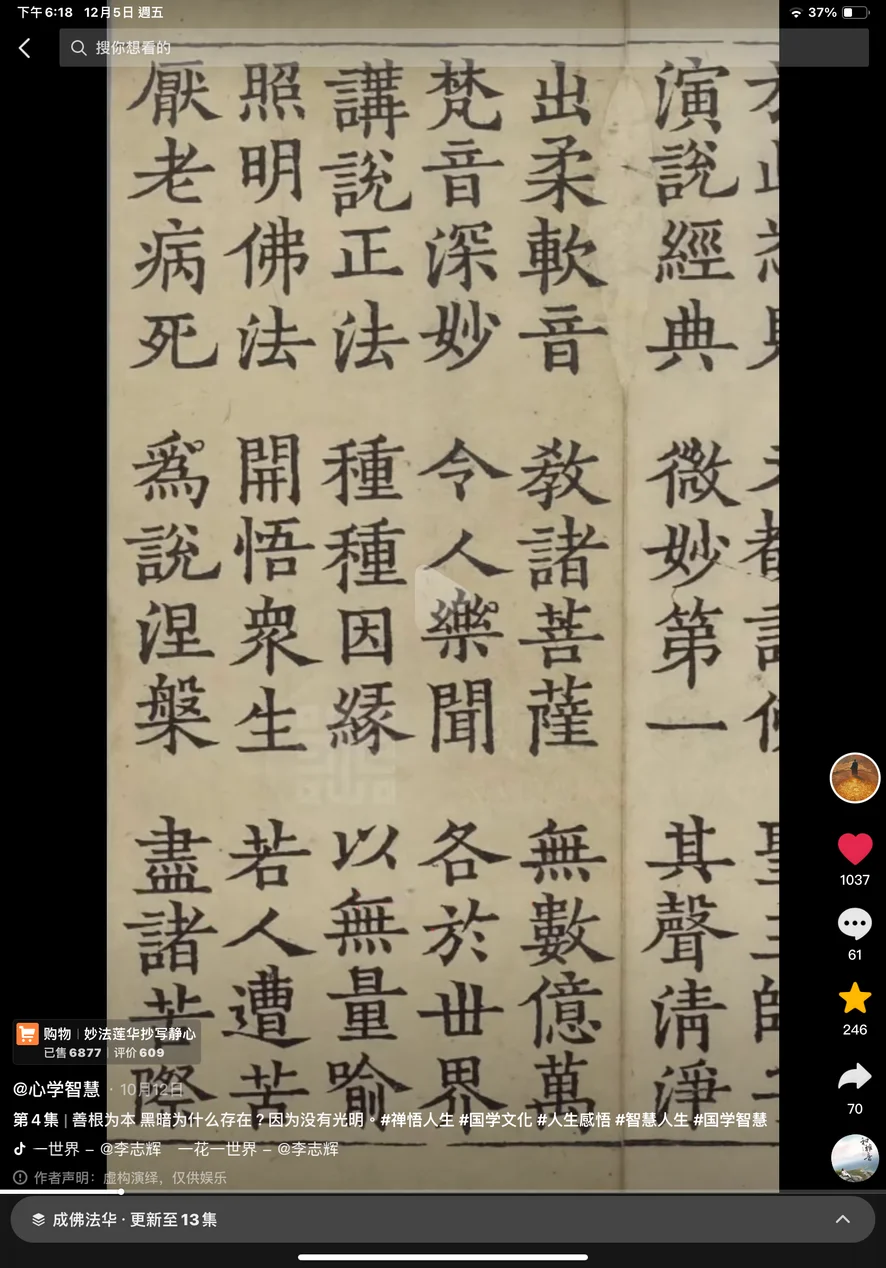 下午6:18 12月5日 週五
37%
搜你想看的
演說經典 微妙第一 其聲清淨
出柔軟音 教諸菩薩 無數億萬
梵音深妙 令人樂聞 各於世界
講說正法 種種因緣 以無量喻
照明佛法 開悟眾生 若人遭苦
厭老病死 爲說涅槃 盡諸苦際
1037
61
246
70
购物 | 妙法莲华抄写静心
已售6877 | 评价609
@心学智慧 · 10月12日
第4集 | 善根为本 黑暗为什么存在？因为没有光明。#禅悟人生 #国学文化 #人生感悟 #智慧人生 #国学智慧
一世界 – @李志辉 一花一世界 – @李志辉
作者声明：虚构演绎，仅供娱乐
成佛法华 · 更新至13集